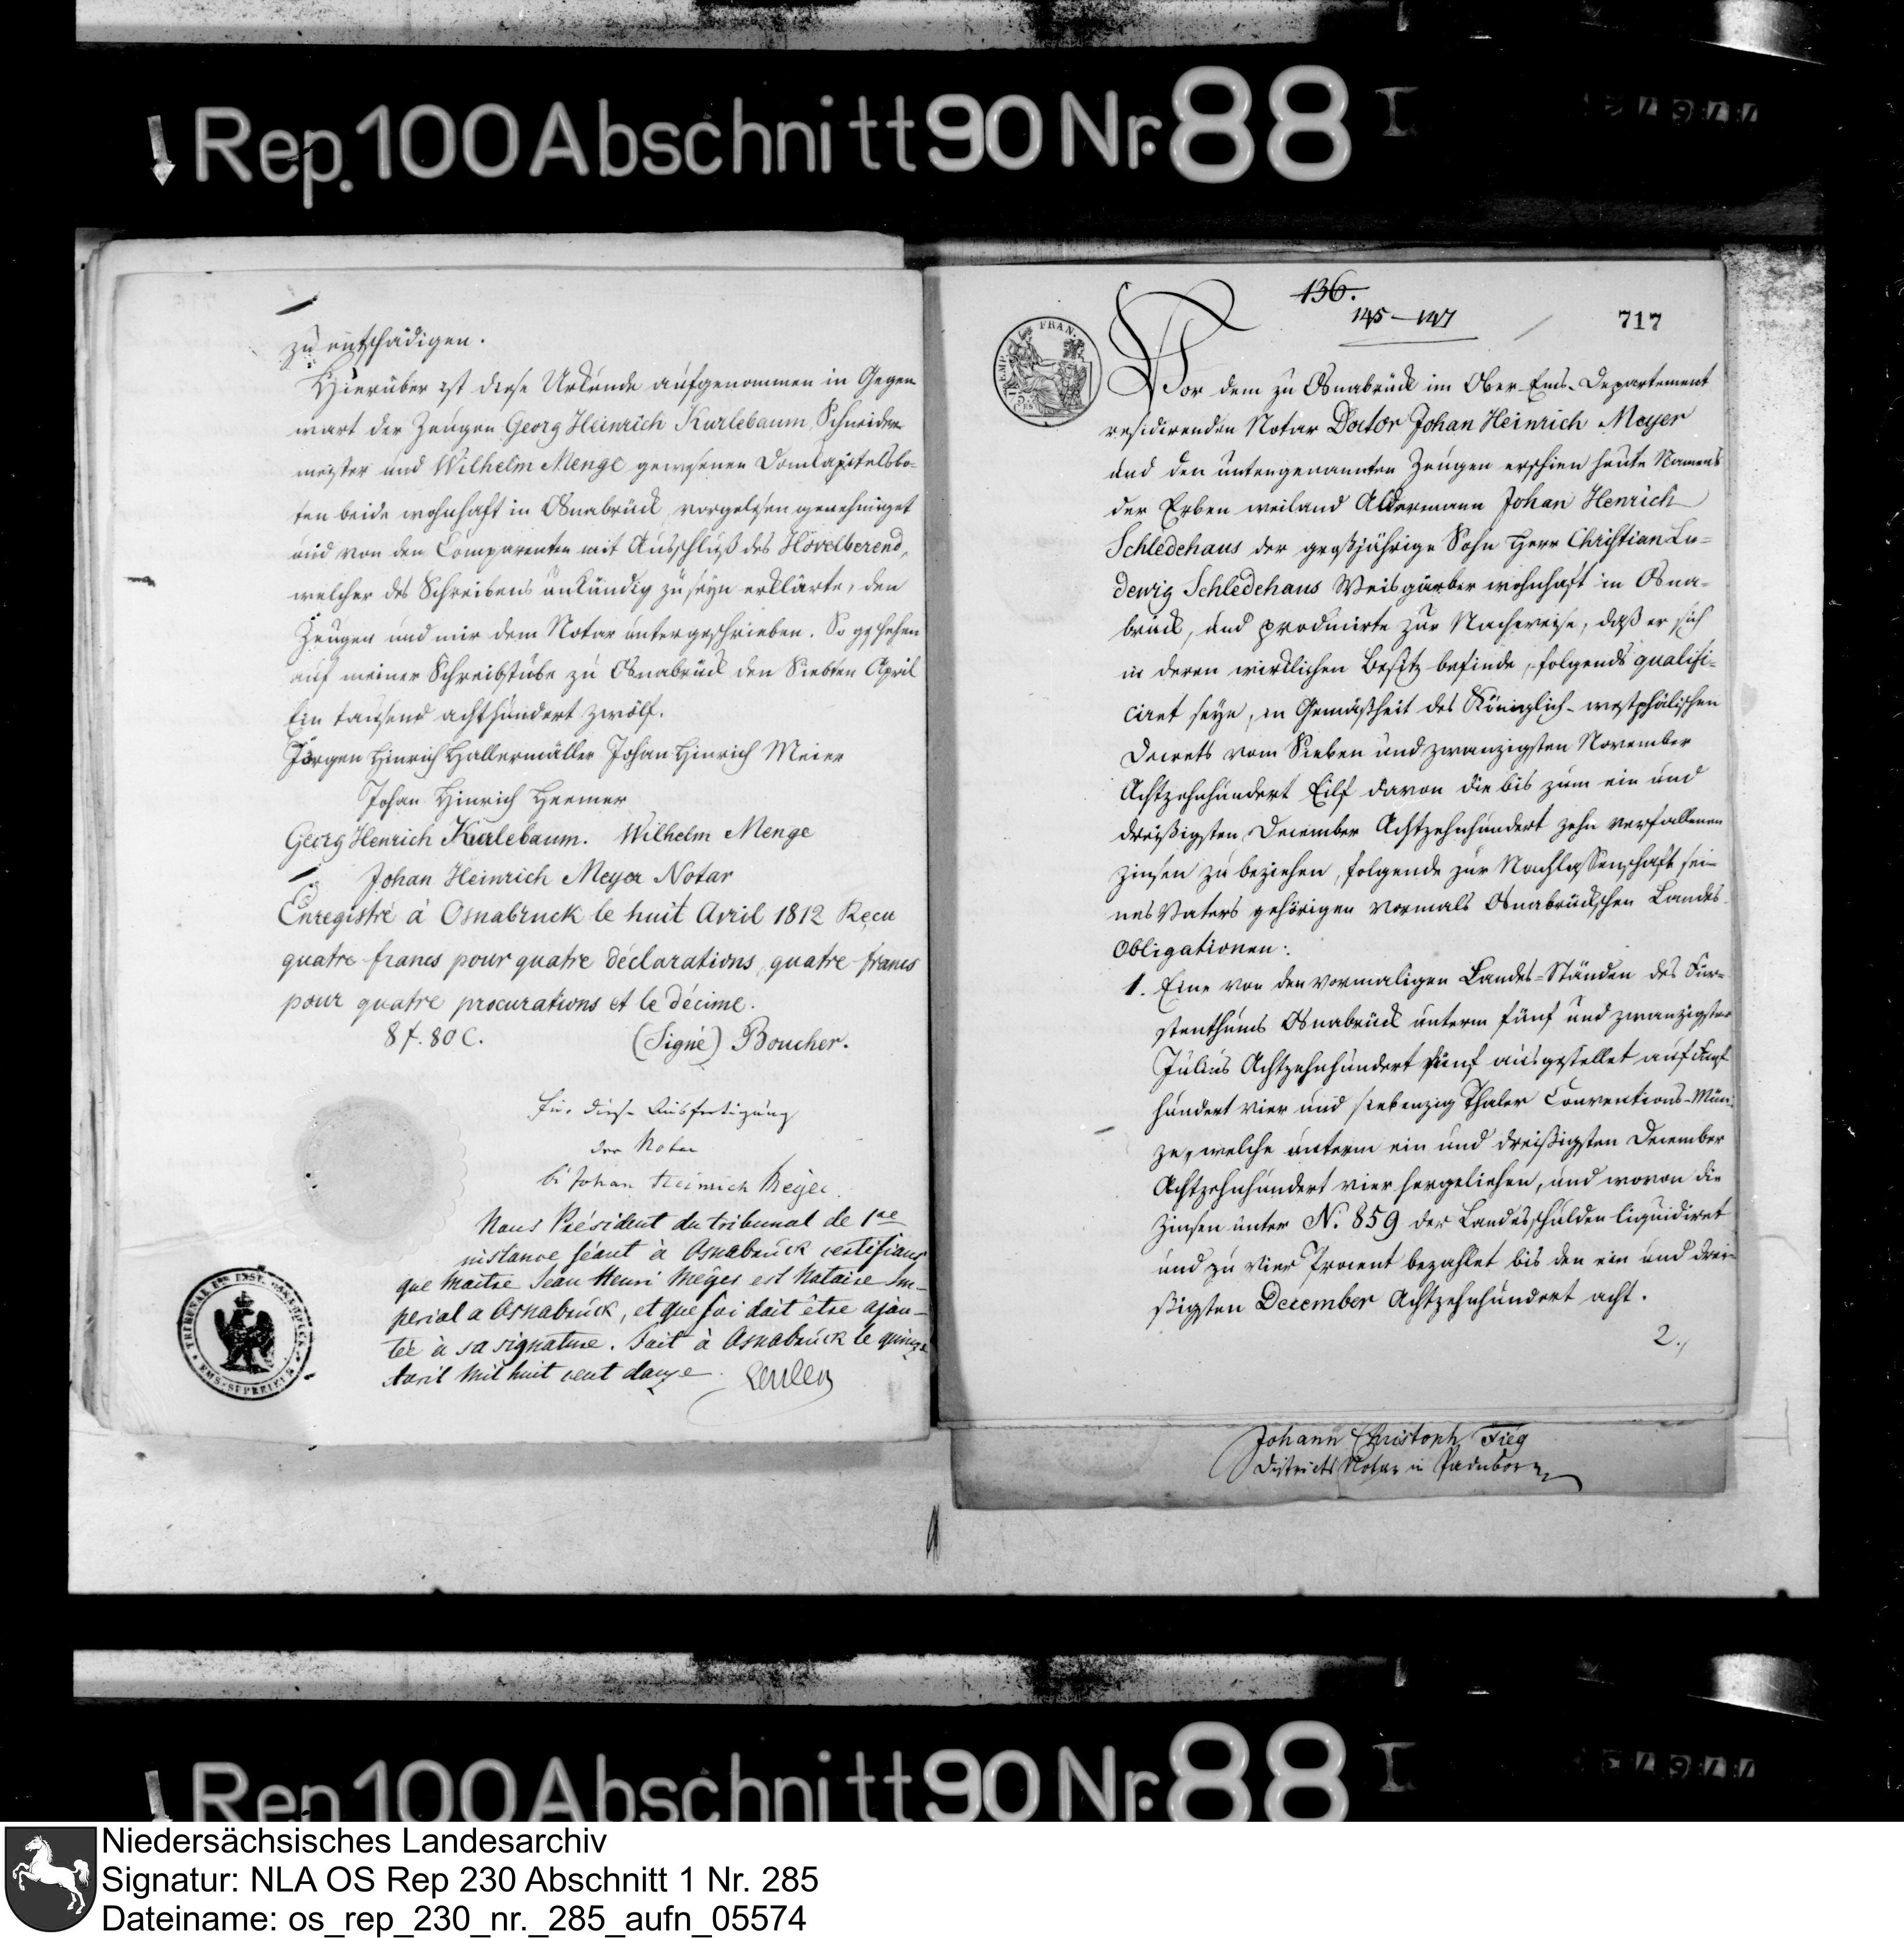 Rep. 100 Abschnitt 90 Nr. 88 I
zu entschädigen.
Hierüber ist diese Urkunde aufgenommen in Gegen
wart der Zeugen Georg Heinrich Kurlebaum Schneider
meister und Wilhelm Menge gewesenen Domkapitelsbo-
ten beide wohnhaft in Osnabrück, vorgelesen genehmiget
und von den Comparenten mit Ausschluß des Hövelberend,
welcher des Schreibens unkündig zu seyn erklärte, den
Zeugen und mir dem Notar untergeschrieben. So geschehen
auf meiner Schreibstube zu Osnabrück den Siebten April
Ein tausend achthundert zwölf.
Jörgen Hinrich Hallermäller Johan Hinrich Meier
Johan Hinrich Heemer
Georg Henrich Kurlebaum. Wilhelm Menge
Johan Heinrich Meyer Notar
Enregistré á Osnabruck le huit Avril 1812 Reçu
quatre francs pour quatre déclarations, quatre francs
pour quatre procurations et le décime.
8 f. 80 C. (Signé) Boucher.
für diese Ausfertigung
der Notar
Johan Heinrich Meyer.
Nous Président du tribunal de 1re
instance séant à Osnabrück certifions
que Maitre Jean Henri Meyer est Notaire Im-
perial a Osnabrück, et que foi doit être ajou-
tée à sa signature. Fait à Osnabrück le quinze
Avril Mil huit cent douze.
TRIBUNAL
EMS-SUPERIEUR
136.
145-147
717
EMP. FRAN.
75 CES
Vor dem zu Osnabrück im Ober-Ems-Departement
residirenden Notar Doctor Johan Heinrich Meyer
und den untengenannten Zeugen erschien heute Namens
der Erben weiland Aldermann Johan Henrich
Schledehaus der großjährige Sohn Herr Christian Lu-
dewig Schledehaus Weisgärber wohnhaft in Osna-
brück, und producirte zur Nachweise, daß er sich
in deren wirklichen Besitz befinde, folgends qualifi-
cirt seye, in Gemäßheit des Königlich-westphälischen
Decrets vom Sieben und zwanzigsten November
Achtzehnhundert Eilf davon die bis zum ein und
dreißigsten December Achtzehnhundert zehn verfallenen
Zinsen zu beziehen, folgende zur Nachlassenschaft sei-
nes Vaters gehörigen vormals Osnabrückschen Landes
Obligationen:
1. Eine von den vormaligen Landes-Ständen des Für-
stenthums Osnabrück unterm fünf und zwanzigsten
Julius Achtzehnhundert fünf ausgestellet auf Fünf
hundert vier und siebenzig Thaler Conventions-Mün-
ze, welche unterm ein und dreißigsten December
Achtzehnhundert vier hergeliehen, und wovon die
Zinsen unter No. 859 der Landesschulden liquidiret
und zu vier Procent bezahlet bis den ein und drei-
ßigsten December Achtzehnhundert acht.
2.,
Johann Christoph Fieg
Districts Notar in Paderborn
Rep. 100 Abschnitt 90 Nr. 88 I
Niedersächsisches Landesarchiv
Signatur: NLA OS Rep 230 Abschnitt 1 Nr. 285
Dateiname: os_rep_230_nr._285_aufn_05574